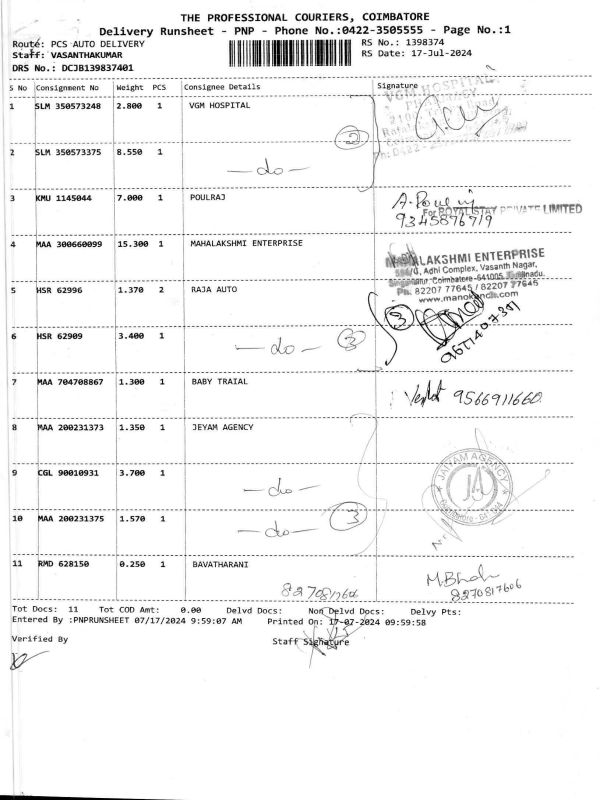 THE PROFESSIONAL COURIERS, COIMBATORE
Delivery Runsheet - PNP - Phone No.:0422-3505555 - Page No.:1
Route: PCS AUTO DELIVERY RS No.: 1398374
Staff: VASANTHAKUMAR RS Date: 17-Jul-2024
DRS No.: DCJB139837401
S No Consignment No Weight PCS Consignee Details Signature
VGM HOSPITAL
PHARMACY
1 SLM 350573248 2.800 1 VGM HOSPITAL
2
2 SLM 350573375 8.550 1
-do-
3 KMU 1145044 7.000 1 POULRAJ
For ROYAL STAY PRIVATE LIMITED
9345876719
4 MAA 300660099 15.300 1 MAHALAKSHMI ENTERPRISE
MAHALAKSHMI ENTERPRISE
Adhi Complex, Vasanth Nagar,
Singanallur, Coimbatore-641005. Tamilnadu.
Ph: 82207 77645 / 82207 77645
www.manokandi.com
5 HSR 62996 1.370 2 RAJA AUTO
3
6 HSR 62909 3.400 1
-do- 3
7 MAA 704708867 1.300 1 BABY TRAIAL
9566911660
8 MAA 200231373 1.350 1 JEYAM AGENCY
JAIYAM AGENCY
JA
Coimbatore
9 CGL 90010931 3.700 1
-do-
10 MAA 200231375 1.570 1
-do- 3
11 RMD 628150 0.250 1 BAVATHARANI
8270817606
8270817606
Tot Docs: 11 Tot COD Amt: 0.00 Delvd Docs: Non Delvd Docs: Delvy Pts:
Entered By :PNPRUNSHEET 07/17/2024 9:59:07 AM Printed On: 17-07-2024 09:59:58
Verified By Staff Signature